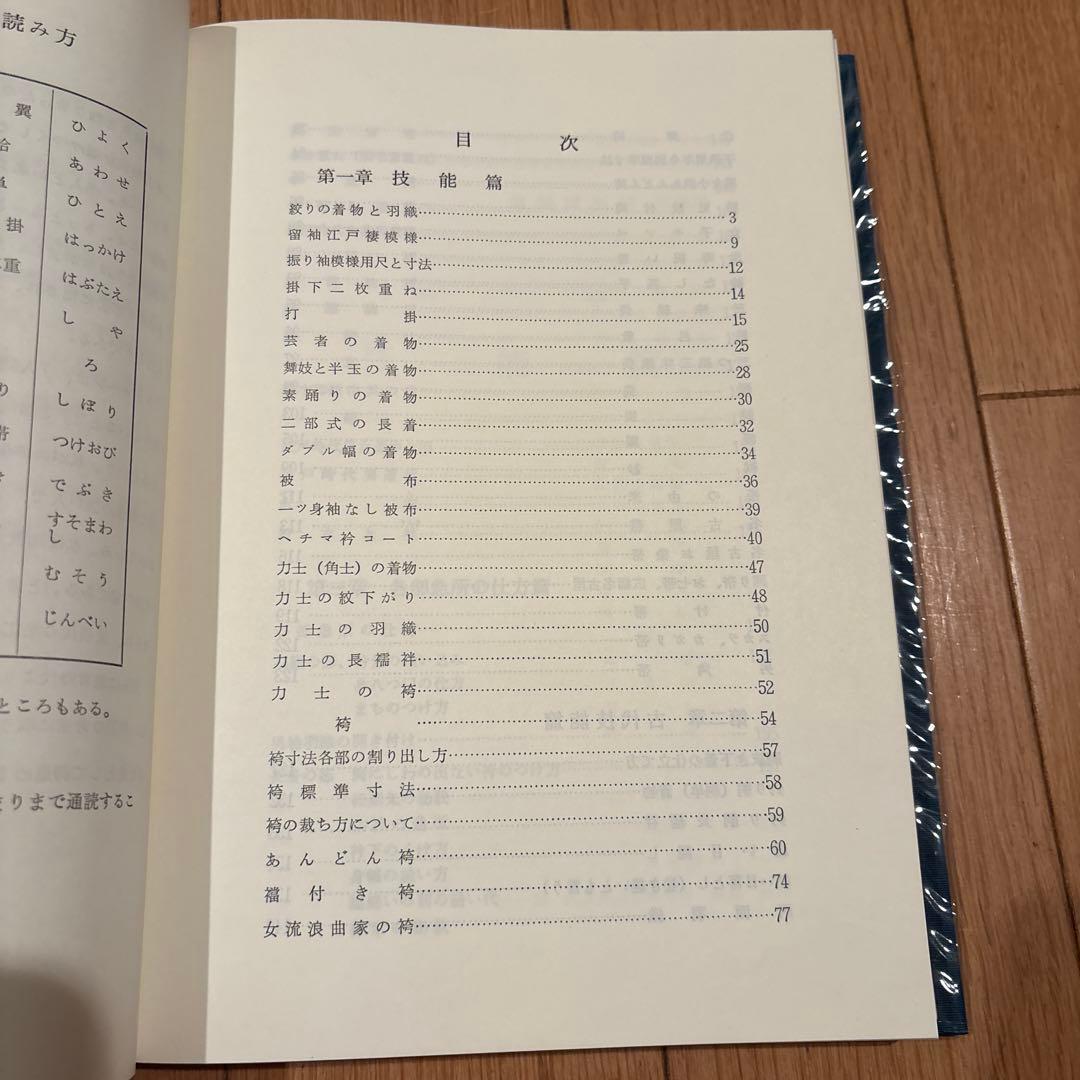 読み方
翼 ひよく
袷 あわせ
ひとえ
掛 はっかけ
重 はぶたえ
しや
ろ
り しぼり
帯 つけおび
でぶき
すそまわし
むそう
じんべい
ところもある。
まりまで通読するこ
目次
第一章 技能篇
絞りの着物と羽織……3
留袖江戸褄模様……9
振り袖模様用尺と寸法……12
掛下二枚重ね……14
打掛……15
芸者の着物……25
舞妓と半玉の着物……28
素踊りの着物……30
二部式の長着……32
ダブル幅の着物……34
被布……36
一ッ身袖なし被布……39
ヘチマ衿コート……40
力士(角士)の着物……47
力士の紋下がり……48
力士の羽織……50
力士の長襦袢……51
力士の袴……52
袴……54
袴寸法各部の割り出し方……57
袴標準寸法……58
袴の裁ち方について……59
あんどん袴……60
襠付き袴……74
女流浪曲家の袴……77